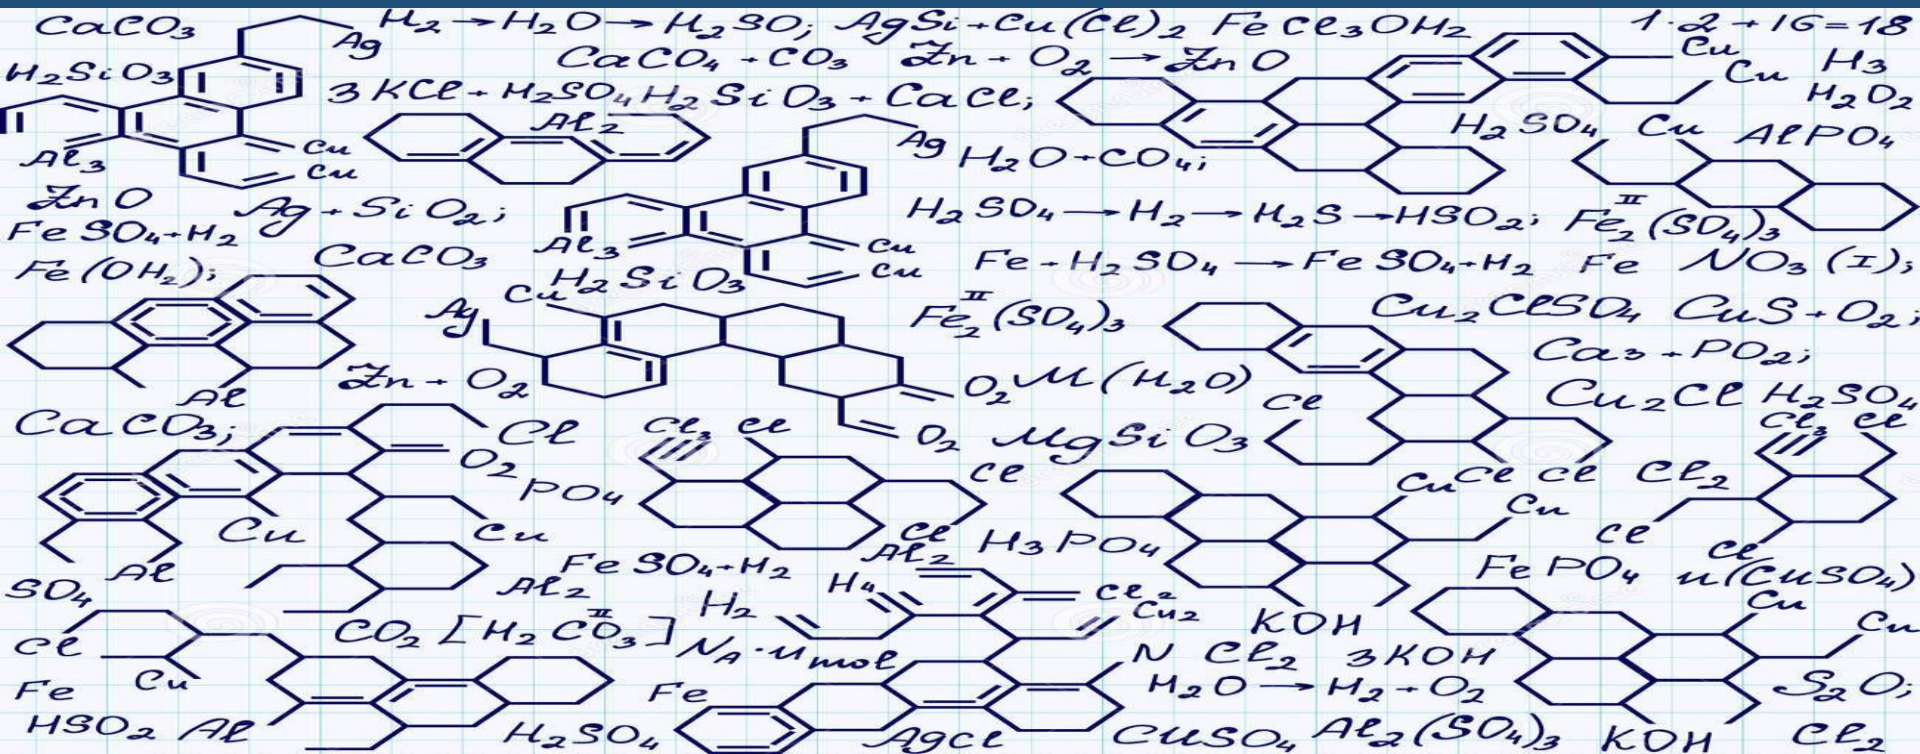 CaCO3 H2 → H2O → H2SO; AgSi+Cu(Cl)2 FeCl3OH2 1·2+16=18
Ag CaCO4 + CO3 Zn + O2 → ZnO Cu
H2SiO3 3KCl + H2SO4 H2SiO3 + CaCl; Cu H3
H2O2
Al2 H2SO4 Cu AlPO4
Al3 Cu Ag H2O+CO4;
Cu
ZnO Ag + SiO2; H2SO4 → H2 → H2S → HSO2; Fe2^II(SO4)3
FeSO4+H2 CaCO3 Al3 Cu Fe+H2SO4 → FeSO4+H2 Fe NO3(I);
Fe(OH2); H2SiO3 Cu
Cu
Ag Fe2^II(SO4)3 Cu2ClSO4 CuS+O2;
Ca3 + PO2;
Al Zn + O2 O2 M(H2O) Cl Cu2Cl H2SO4
CaCO3; Cl Cl3 Cl O2 MgSiO3 Cl3 Cl
O2 PO4 Cl Cu Cl Cl Cl2
Cu Cu Cl H3PO4 Cu Cl
Al FeSO4+H2 Al2 FePO4 Cl
SO4 Al2 H2 H4 Cl2 n(CuSO4)
Cu2 Cu
Cl CO2 [H2CO3^II] NA·nmol KOH Cu
Cu N Cl2 3KOH
Fe Fe H2O → H2 + O2 S2O;
HSO2 Al H2SO4 AgCl CuSO4 Al2(SO4)3 KOH Cl2